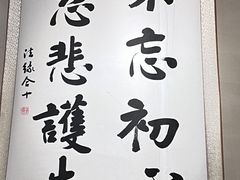 忘初
慈悲護生
法緣合十